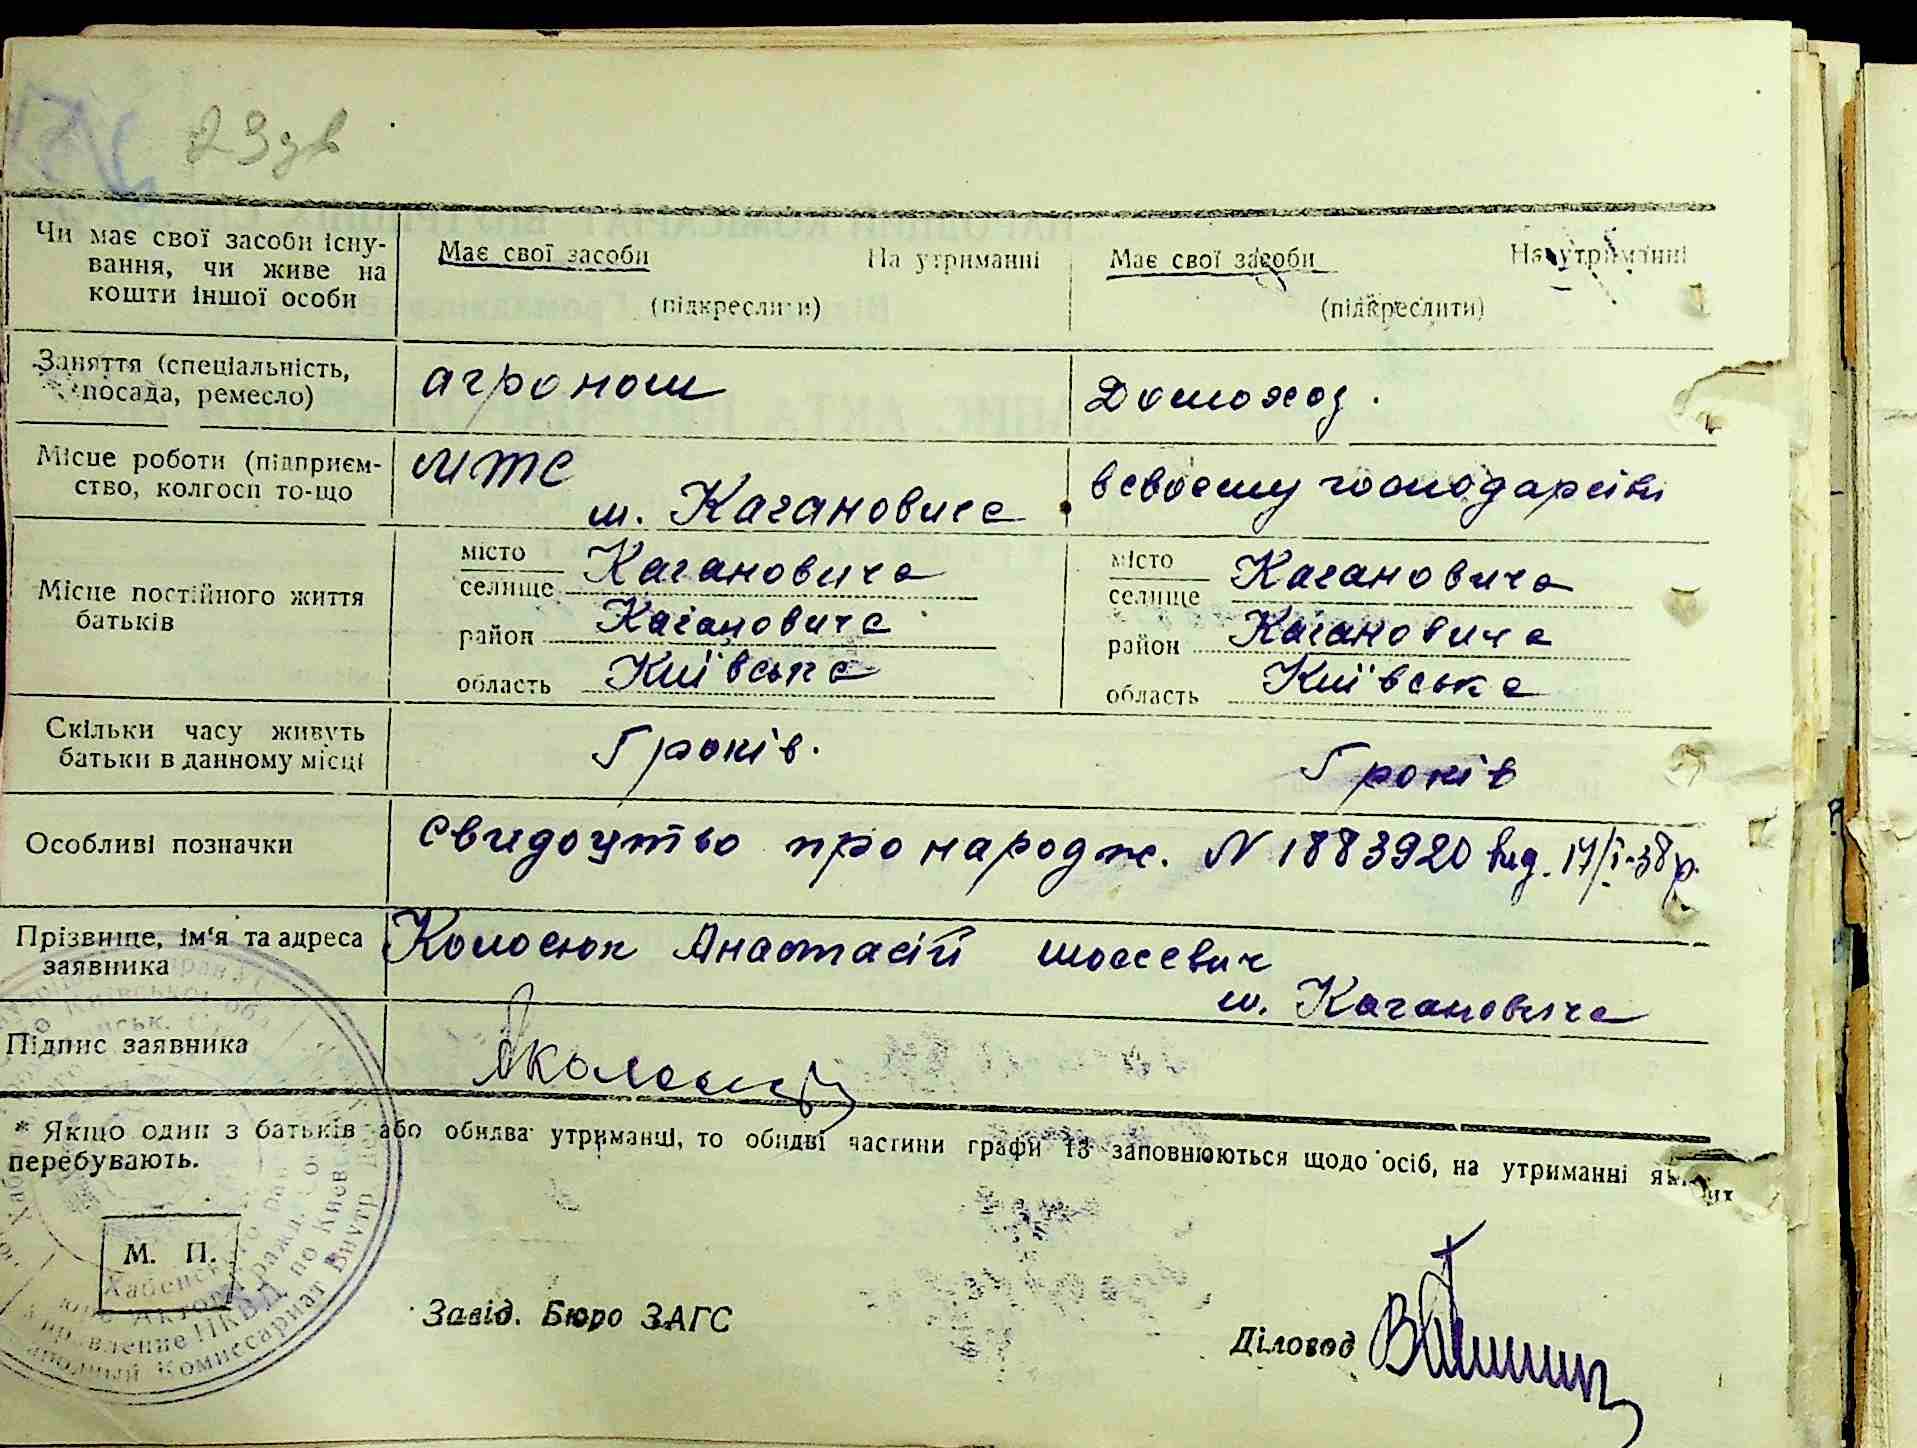 23 зв
Чи має свої засоби існу-
вання, чи живе на
кошти іншої особи
Має свої засоби На утриманні
(підкреслити)
Має свої засоби На утриманні
(підкреслити)
Заняття (спеціальність,
посада, ремесло)
агроном
Домохоз.
Місце роботи (підприєм-
ство, колгосп то-що
МТС
м. Кагановича
в своєму господарсві
Місце постійного життя
батьків
місто
селище Кагановича
район Кагановича
область Київська
місто
селище Кагановича
район Кагановича
область Київська
Скільки часу живуть
батьки в данному місці
років.
років
Особливі позначки
Свидоцтво про народж. N 1883920 вид. 17/I-38 р.
Прізвище, ім'я та адреса
заявника
Колосюк Анастасій Мосеевич
м. Кагановича
Підпис заявника
* Якщо один з батьків або обидва утриманці, то обидві частини графи 13 заповнюються щодо осіб, на утриманні яких
перебувають.
М. П.
Завід. Бюро ЗАГС
Діловод